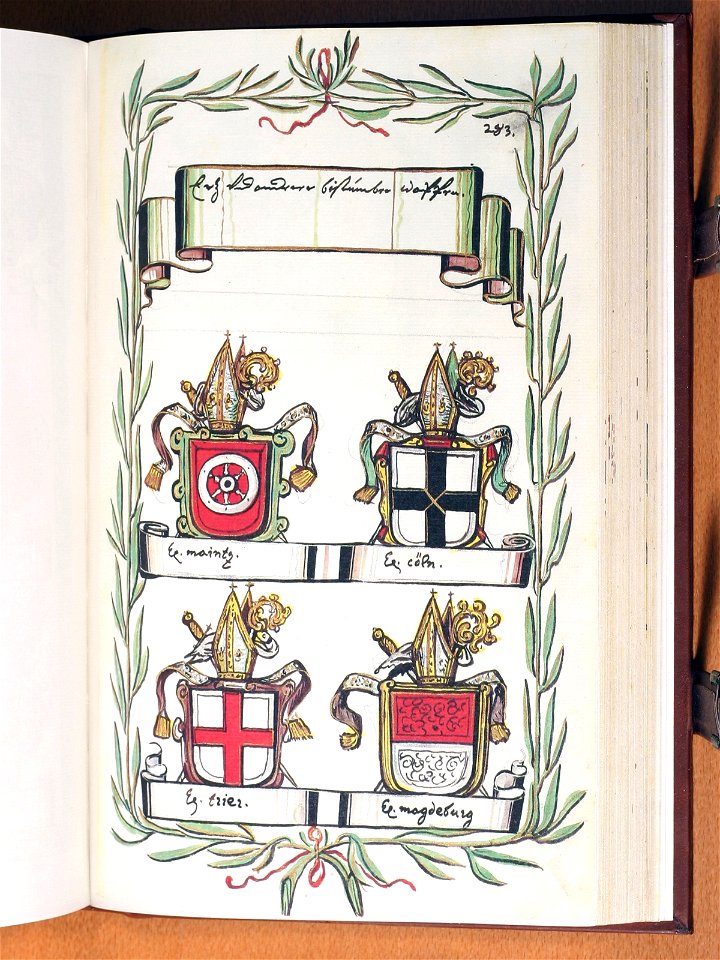 283.
Ertz und anderer bistumber wappen.
Er. maintz.
Er. cöln.
Er. trier.
Er. magdeburg